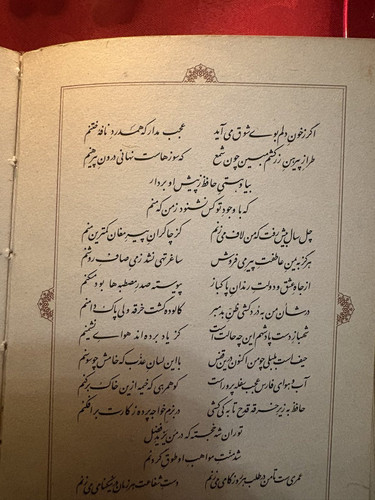 اگر ز خون دلم بوی شوق می‌آید عجب مدار که همدرد نافهٔ ختنم
طراز پیرهن زرکشم مبین چون شمع که سوزهاست نهانی درون پیرهنم
بیا و هستی حافظ ز پیش او بردار
که با وجود تو کس نشنود ز من که منم
چل سال بیش رفت که من لاف می‌زنم کز چاکران پیر مغان کمترین منم
هرگز به یمن عاطفت پیر می فروش ساغر تهی نشد ز می صاف روشنم
از جاه عشق و دولت رندان پاکباز پیوسته صدر مصطبه‌ها بود مسکنم
در شأن من به دردکشی ظن بد مبر کآلوده گشت خرقه ولی پاک دامنم
شهباز دست پادشهم این چه حالت است کز یاد برده‌اند هوای نشیمنم
حیف است بلبلی چو من اکنون درین قفس با این لسان عذب که خامش چو سوسنم
آب و هوای فارس عجب سفله پرور است کو همرهی که خیمه ازین خاک برکنم
حافظ به زیر خرقه قدح تا به کی کشی در بزم خواجه پرده ز کارت برافکنم
توران شه خجسته که در من یزید فضل
شد منت مواهب او طوق گردنم
عمریست تا من در طلب هر روز گامی می‌زنم دست شفاعت هر زمان در نیکنامی می‌زنم